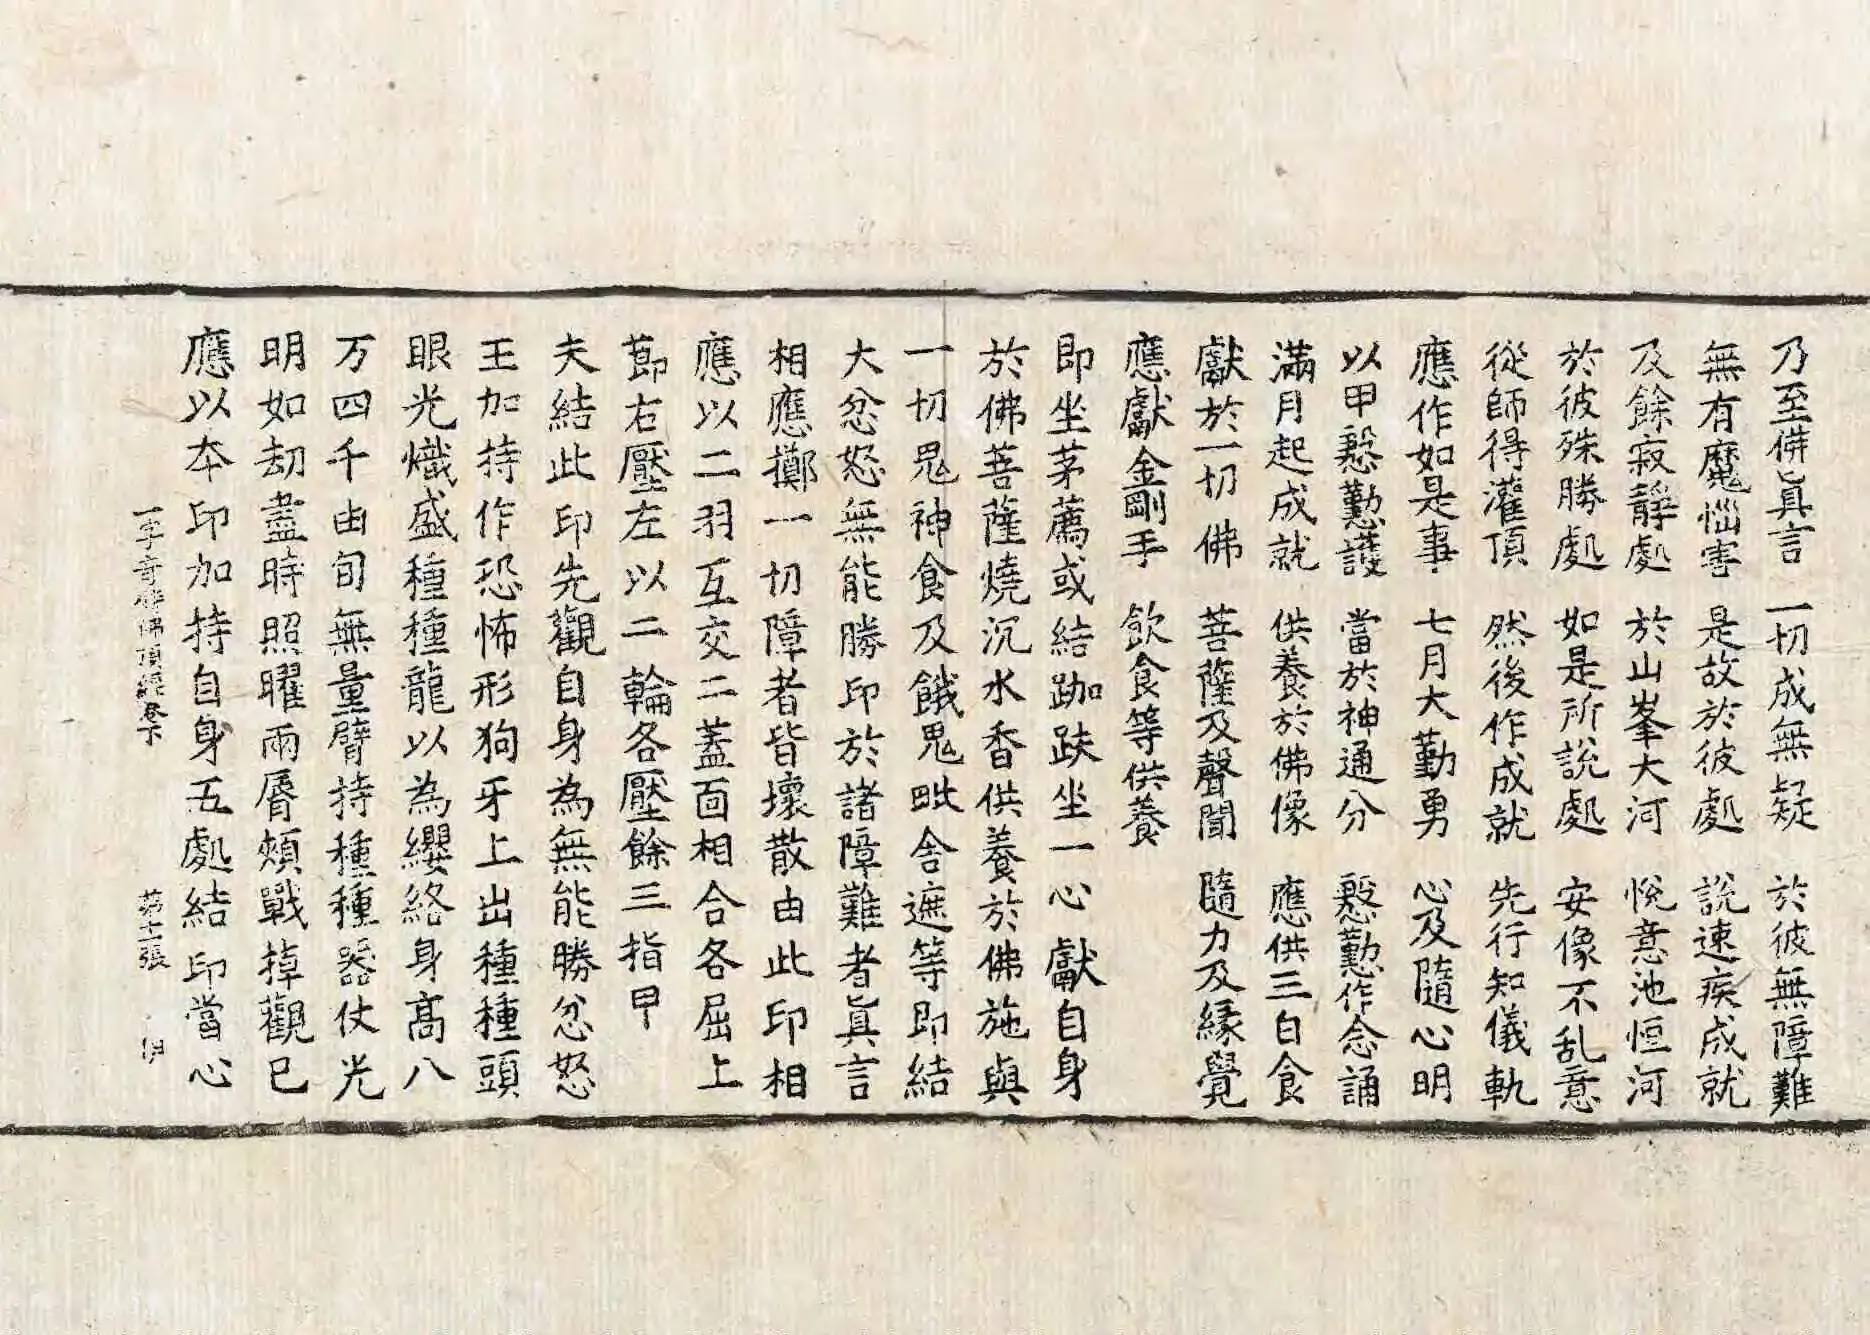 乃至佛眞言　一切成無疑　於彼無障難
無有魔惱害　是故於彼處　說速疾成就
及餘寂靜處　於山峯大河　悅意池恒河
於彼殊勝處　如是所說處　安像不乱意
從師得灌頂　然後作成就　先行知儀軌
應作如是事　七月大勤勇　心及隨心明
以甲慇懃護　當於神通分　慇懃作念誦
滿月起成就　供養於佛像　應供三白食
獻於一切佛　菩薩及聲聞　隨力及緣覺
應獻金剛手　飮食等供養
即坐茅薦或結跏趺坐一心獻自身
於佛菩薩燒沉水香供養於佛施與
一切鬼神食及餓鬼毗舍遮等即結
大忿怒無能勝印於諸障難者眞言
相應擲一切障者皆壞散由此印相
應以二羽互交二蓋面相合各屈上
節右壓左以二輪各壓餘三指甲
夫結此印先觀自身為無能勝忿怒
王加持作恐怖形狗牙上出種種頭
眼光熾盛種種龍以為纓絡身髙八
万四千由旬無量臂持種種器仗光
明如刧盡時照曜兩脣頰戰掉觀已
應以夲印加持自身五處結印當心
一字奇特佛頂經卷下　第十二張　伊